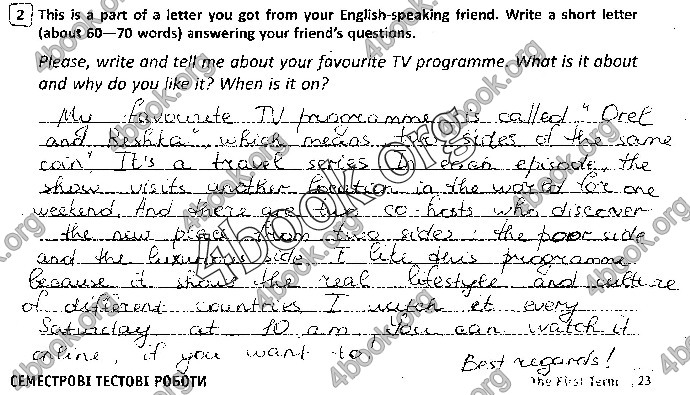 2 This is a part of a letter you got from your English-speaking friend. Write a short letter
(about 60—70 words) answering your friend's questions.
Please, write and tell me about your favourite TV programme. What is it about
and why do you like it? When is it on?
My favourite TV programme is called "Orel
and Reshka", which means two sides of the same
coin". It's a travel series. In each episode, the
show visits another location in the world for one
weekend. And there are two co-hosts who discover
the new place from two sides: the poor side
and the luxurious side. I like this programme
because it shows the real lifestyle and culture
of different countries. I watch it every
Saturday at 10 a.m. You can watch it
online, if you want to.
Best regards!
СЕМЕСТРОВІ ТЕСТОВІ РОБОТИ
The First Term 23
4book.org